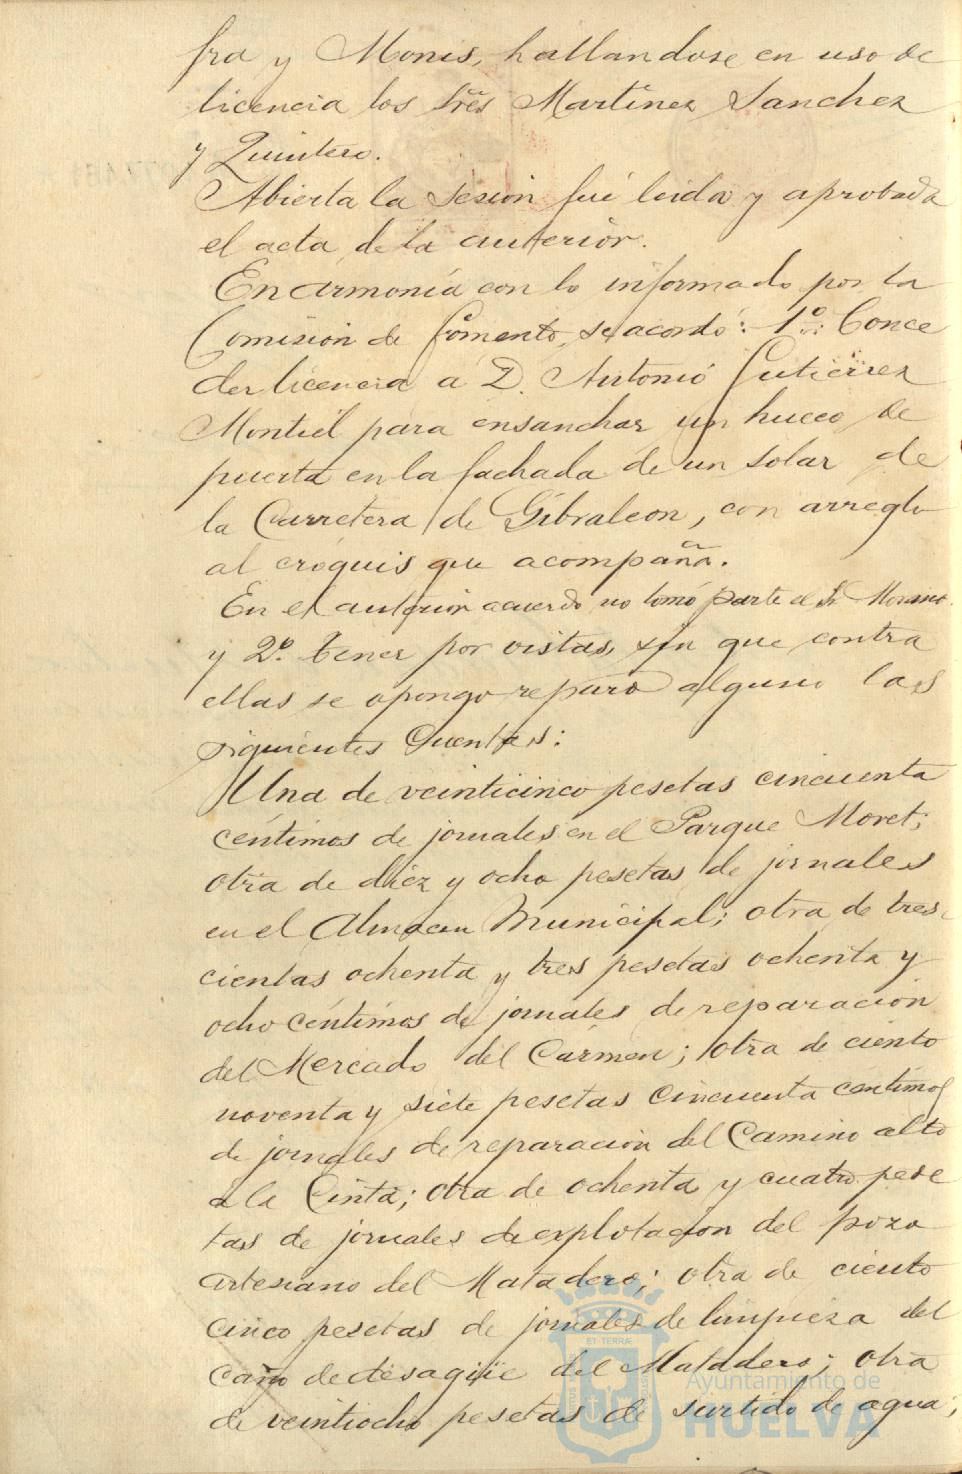 fra y Monis, hallandose en uso de
licencia los Sres Martinez Sanchez
y Quintero.
Abierta la sesion fué leida y aprobada
el acta de la anterior.
En armonía con lo informado por la
Comisión de fomento, se acordó: 1º: Conce
der licencia a D. Antonio Gutierrez
Montiel para ensanchar un hueco de
puerta en la fachada de un solar de
la Carretera de Gibraleon, con arreglo
al cróquis que acompaña.
En el anterior acuerdo no tomó parte el Sr Moreno.
y 2º. tener por vistas, sin que contra
ellas se oponga reparo alguno las
siguientes Cuentas:
Una de veinticinco pesetas cincuenta
céntimos de jornales en el Parque Moret;
otra de diez y ocho pesetas de jornales
en el Almacen Municipal; otra de tres-
cientas ochenta y tres pesetas ochenta y
ocho céntimos de jornales de reparación
del Mercado del Cármen; otra de ciento
noventa y siete pesetas cincuenta céntimos
de jornales de reparación del Camino alto
a la Cinta; otra de ochenta y cuatro pese
tas de jornales de explotación del pozo
artesiano del Matadero; otra de ciento
cinco pesetas de jornales de limpieza del
caño de desagüe del Matadero; otra
de veintiocho pesetas de surtido de agua;
Ayuntamiento de
HUELVA